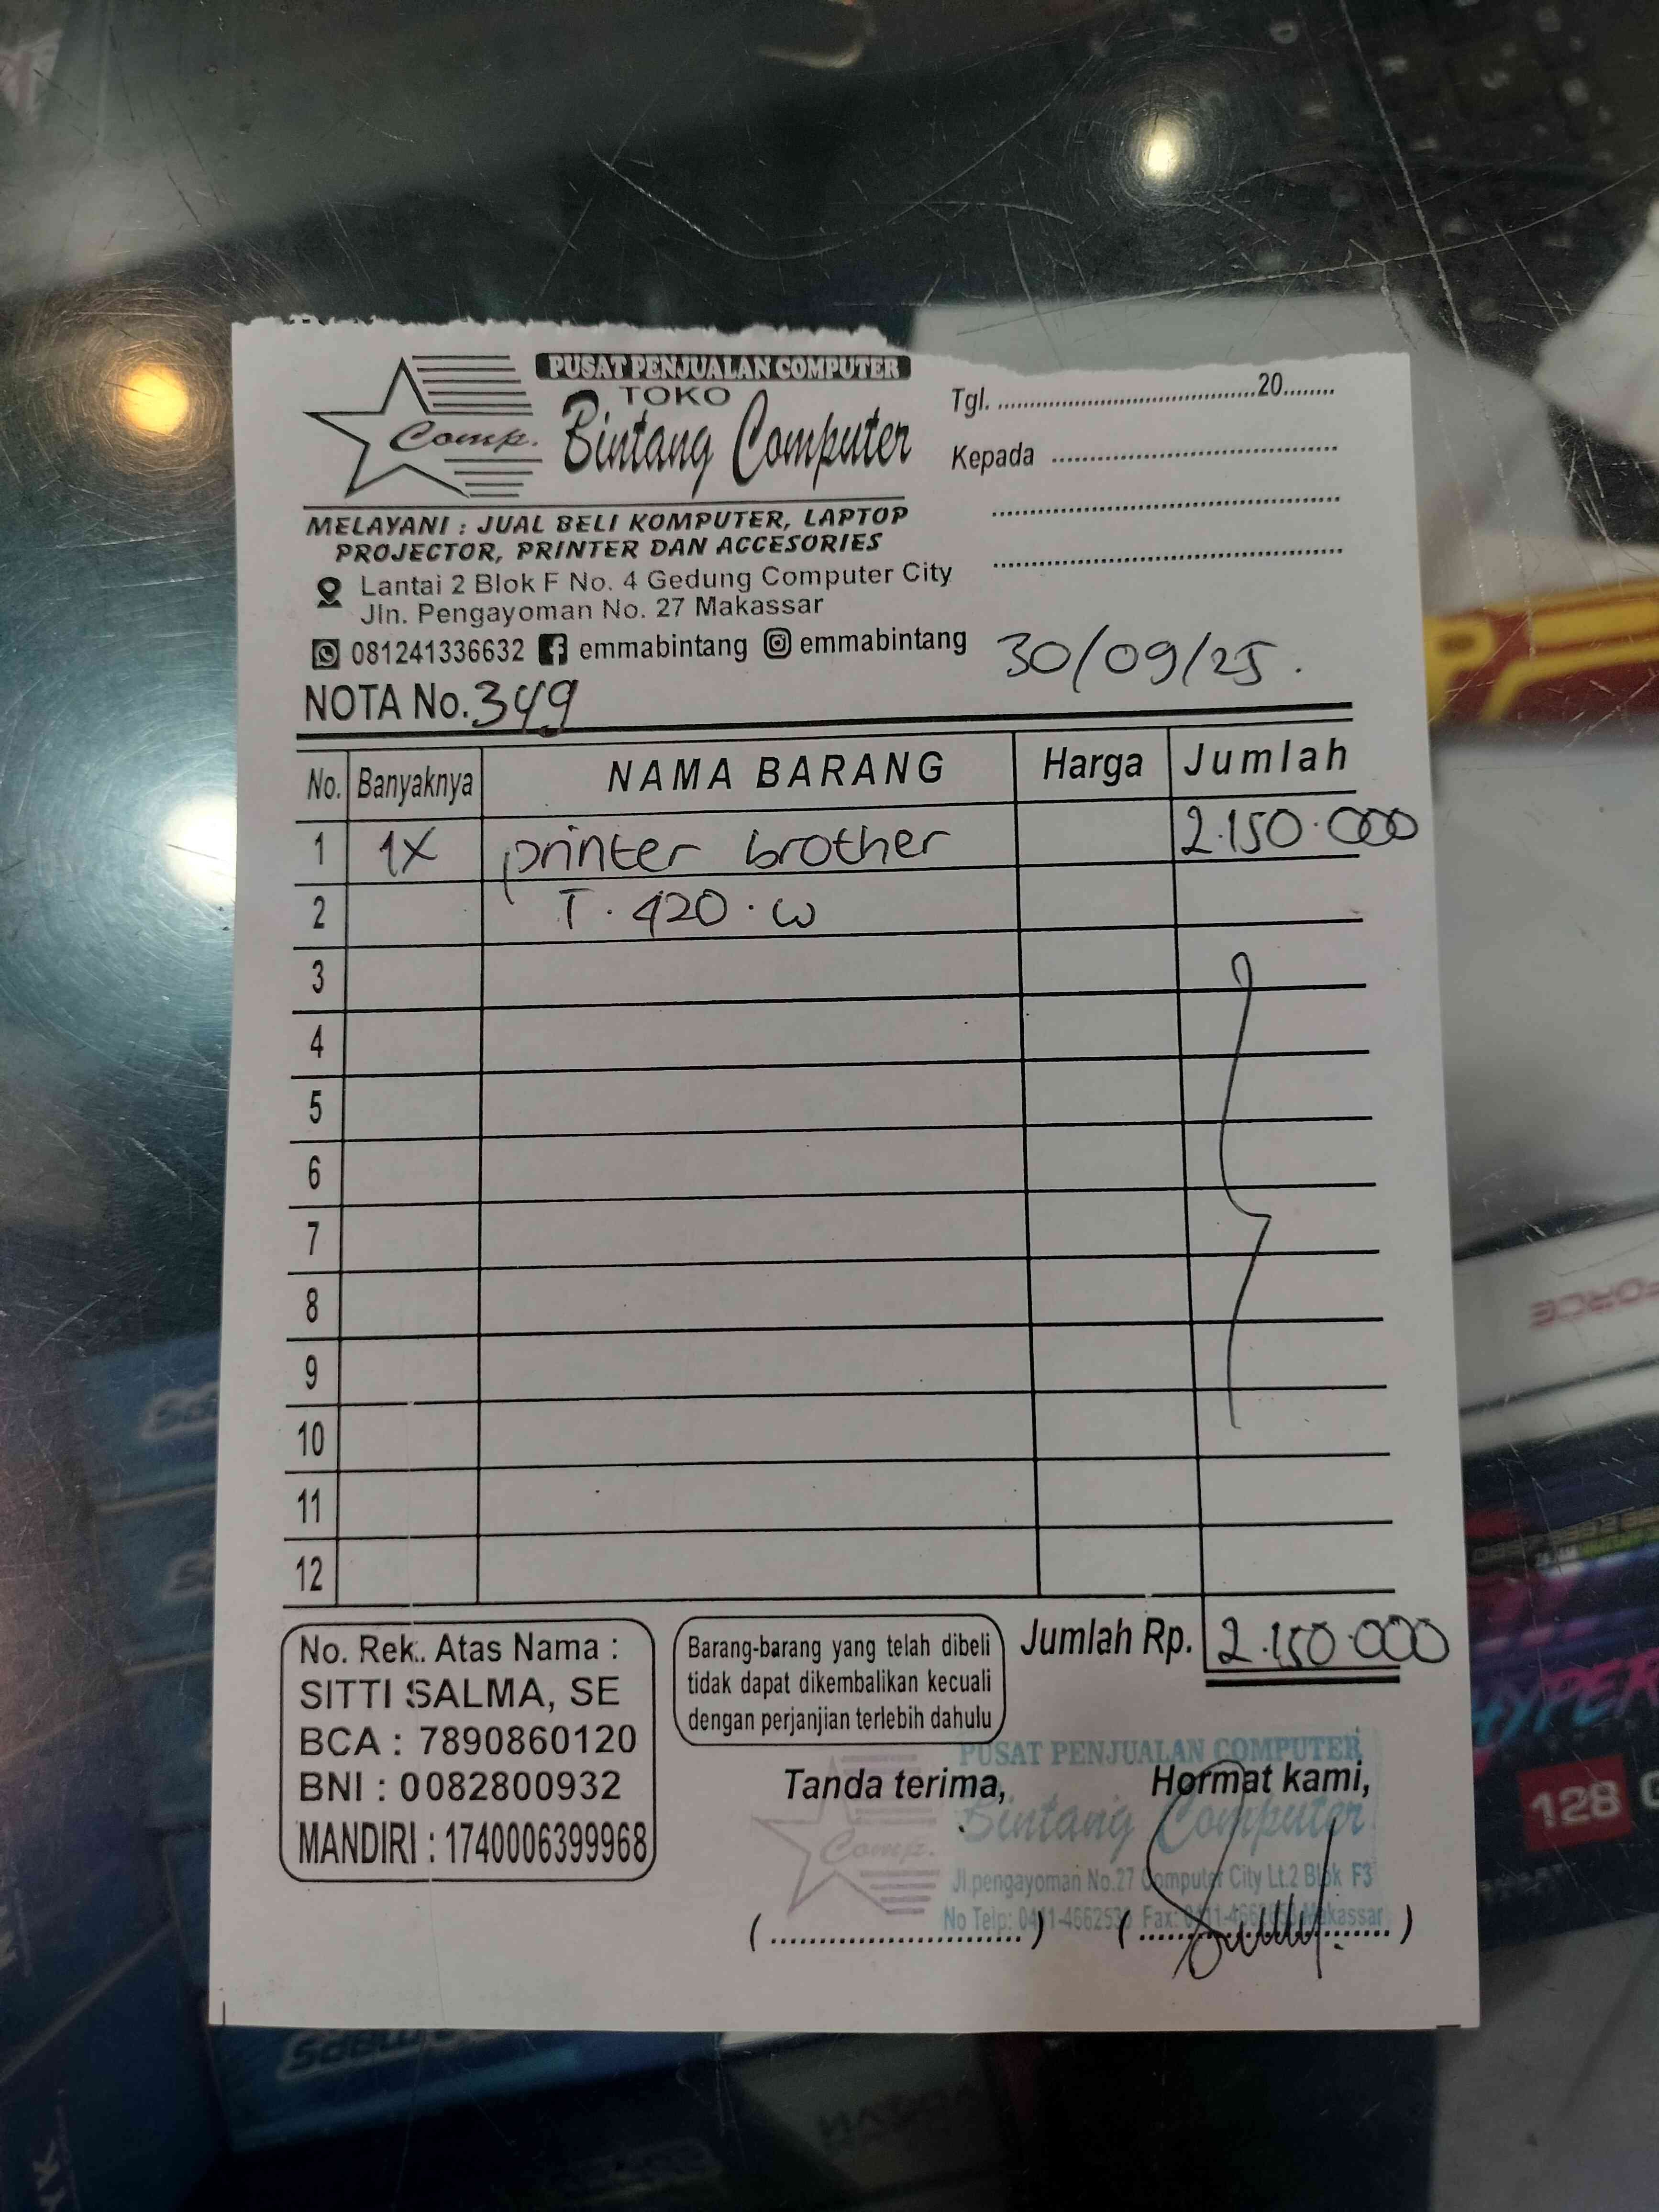 PUSAT PENJUALAN COMPUTER
TOKO
Comp. Bintang Computer
MELAYANI : JUAL BELI KOMPUTER, LAPTOP
PROJECTOR, PRINTER DAN ACCESORIES
Lantai 2 Blok F No. 4 Gedung Computer City
Jln. Pengayoman No. 27 Makassar
081241336632 emmabintang emmabintang
Tgl. ..........................................20........
Kepada ................................................
30/09/25.
NOTA No. 349
No. Banyaknya NAMA BARANG Harga Jumlah
1 1X printer brother 2.150.000
2 T.420.W
3
4
5
6
7
8
9
10
11
12
Jumlah Rp. 2.150.000
No. Rek.. Atas Nama :
SITTI SALMA, SE
BCA : 7890860120
BNI : 0082800932
MANDIRI : 1740006399968
Barang-barang yang telah dibeli
tidak dapat dikembalikan kecuali
dengan perjanjian terlebih dahulu
Tanda terima, Hormat kami,
PUSAT PENJUALAN COMPUTER
Comp. Bintang Computer
Jl.pengayoman No.27 Computer City Lt.2 Blok F3
No Telp: Fax: Makassar
FORCE
HYPER
128